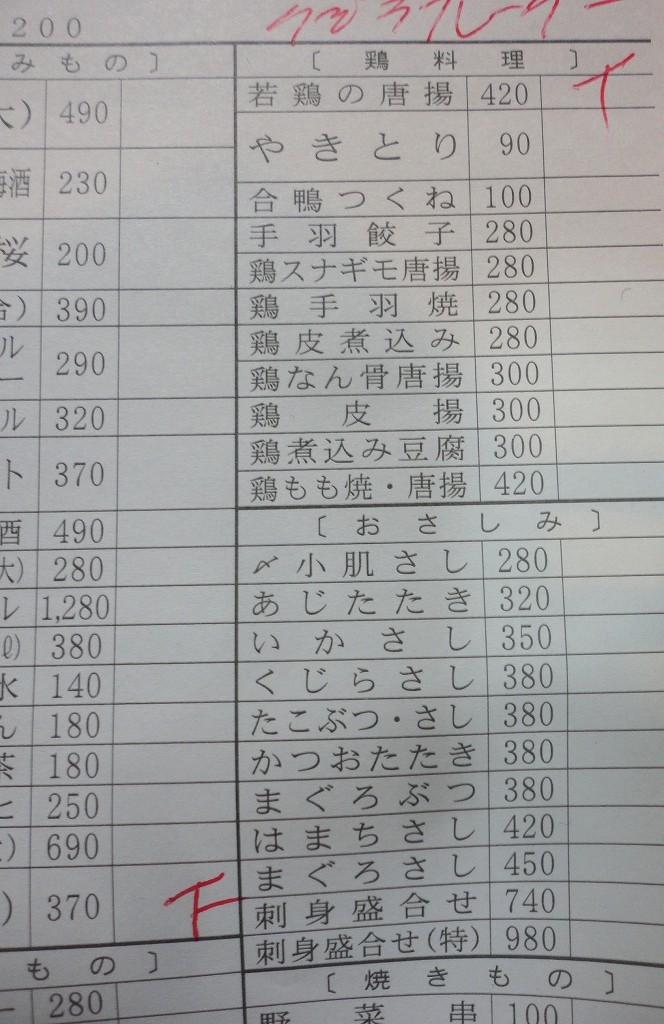 200
みもの］
大） 490
梅酒 230
桜 200
合） 390
ル
ー 290
ル 320
ト 370
酒 490
大） 280
ル 1,280
ℓ） 380
水 140
ん 180
茶 180
ヒ 250
） 690
） 370
もの］
ー 280
［鶏料理］
若鶏の唐揚 420
やきとり 90
合鴨つくね 100
手羽餃子 280
鶏スナギモ唐揚 280
鶏手羽焼 280
鶏皮煮込み 280
鶏なん骨唐揚 300
鶏皮揚 300
鶏煮込み豆腐 300
鶏もも焼・唐揚 420
［おさしみ］
〆小肌さし 280
あじたたき 320
いかさし 350
くじらさし 380
たこぶつ・さし 380
かつおたたき 380
まぐろぶつ 380
はまちさし 420
まぐろさし 450
刺身盛合せ 740
刺身盛合せ（特） 980
［焼きもの］
野菜串 100